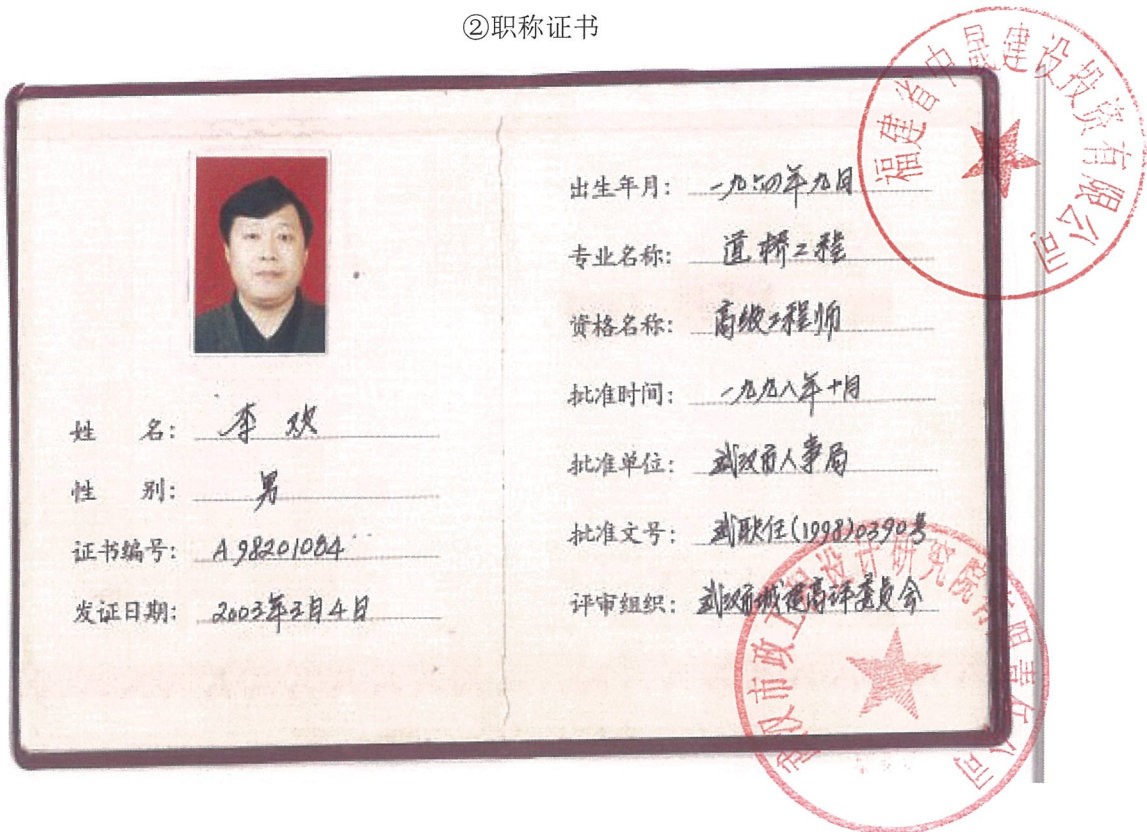 ②职称证书
姓 名： 李欢
性 别： 男
证书编号： A98201084
发证日期： 2003年3月4日
出生年月： 一九六四年九月
专业名称： 道桥工程
资格名称： 高级工程师
批准时间： 一九九八年十月
批准单位： 武汉市人事局
批准文号： 武职任(1998)0390号
评审组织： 武汉市城建高评委员会
福建省中晟建设投资有限公司
武汉市政工程设计研究院有限责任公司